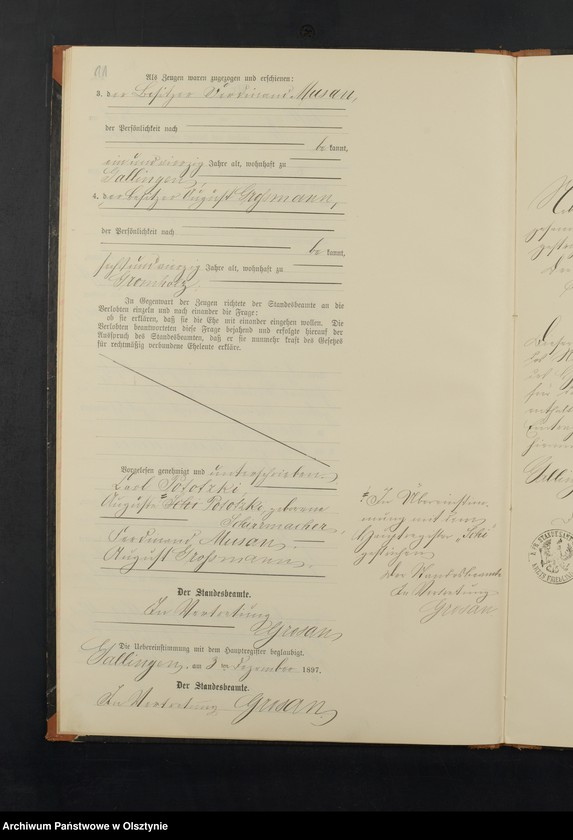 Als Zeugen waren zugezogen und erschienen:
3. der Besitzer Ferdinand Musan,
der Persönlichkeit nach
be kannt,
einundvierzig Jahre alt, wohnhaft zu
Gallingen
4. der Besitzer August Großmann,
der Persönlichkeit nach
be kannt,
sechsundvierzig Jahre alt, wohnhaft zu
In Gegenwart der Zeugen richtete der Standesbeamte an die
Verlobten einzeln und nach einander die Frage:
ob sie erklären, daß sie die Ehe mit einander eingehen wollen. Die
Verlobten beantworteten diese Frage bejahend und erfolgte hierauf der
Ausspruch des Standesbeamten, daß er sie nunmehr kraft des Gesetzes
für rechtmäßig verbundene Eheleute erkläre.
Vorgelesen genehmigt und unterschrieben
Karl Pototzki
Auguste Pototzki geborene
Schirrmacher.
Ferdinand Musan.
August Großmann.
Der Standesbeamte.
In Vertretung
Grusan
Die Uebereinstimmung mit dem Hauptregister beglaubigt.
Gallingen, am 3ten Dezember 1897.
Der Standesbeamte.
In Vertretung Grusan
In Übereinstim-
mung mit dem
Hauptregister
gestrichen
Der Standesbeamte
In Vertretung
Grusan
Archiwum Państwowe w Olsztynie